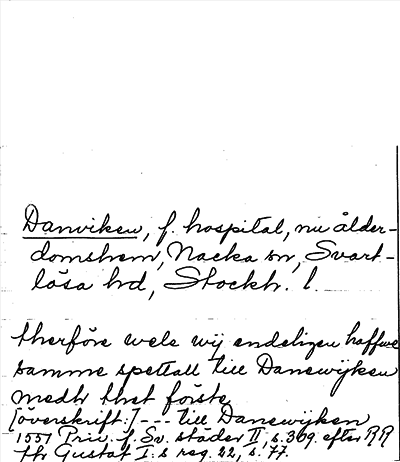 Danviken, f. hospital, nu ålder-
domshem, Nacka sn, Svart-
lösa hd, Stockh. l.
therföre wele wij endeligen haffue
samme spettall till Danewijken
medh thet förste
[överskrift:] --- till Danewijken
1551 Priv. f. Sv. städer II, s. 309. efter RR
fr Gustaf I:s reg. 22, s. 77.